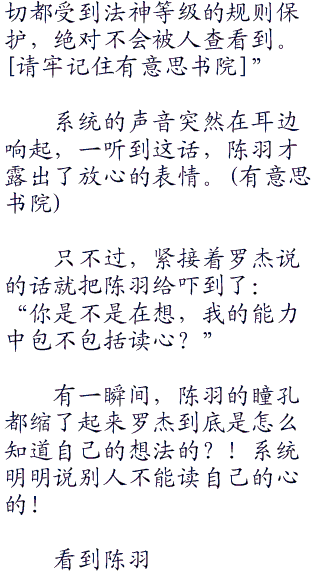 切都受到法神等级的规则保
护，绝对不会被人查看到。
[请牢记住有意思书院]”
系统的声音突然在耳边
响起，一听到这话，陈羽才
露出了放心的表情。(有意思
书院)
只不过，紧接着罗杰说
的话就把陈羽给吓到了：
“你是不是在想，我的能力
中包不包括读心？”
有一瞬间，陈羽的瞳孔
都缩了起来罗杰到底是怎么
知道自己的想法的？！系统
明明说别人不能读自己的心
的！
看到陈羽